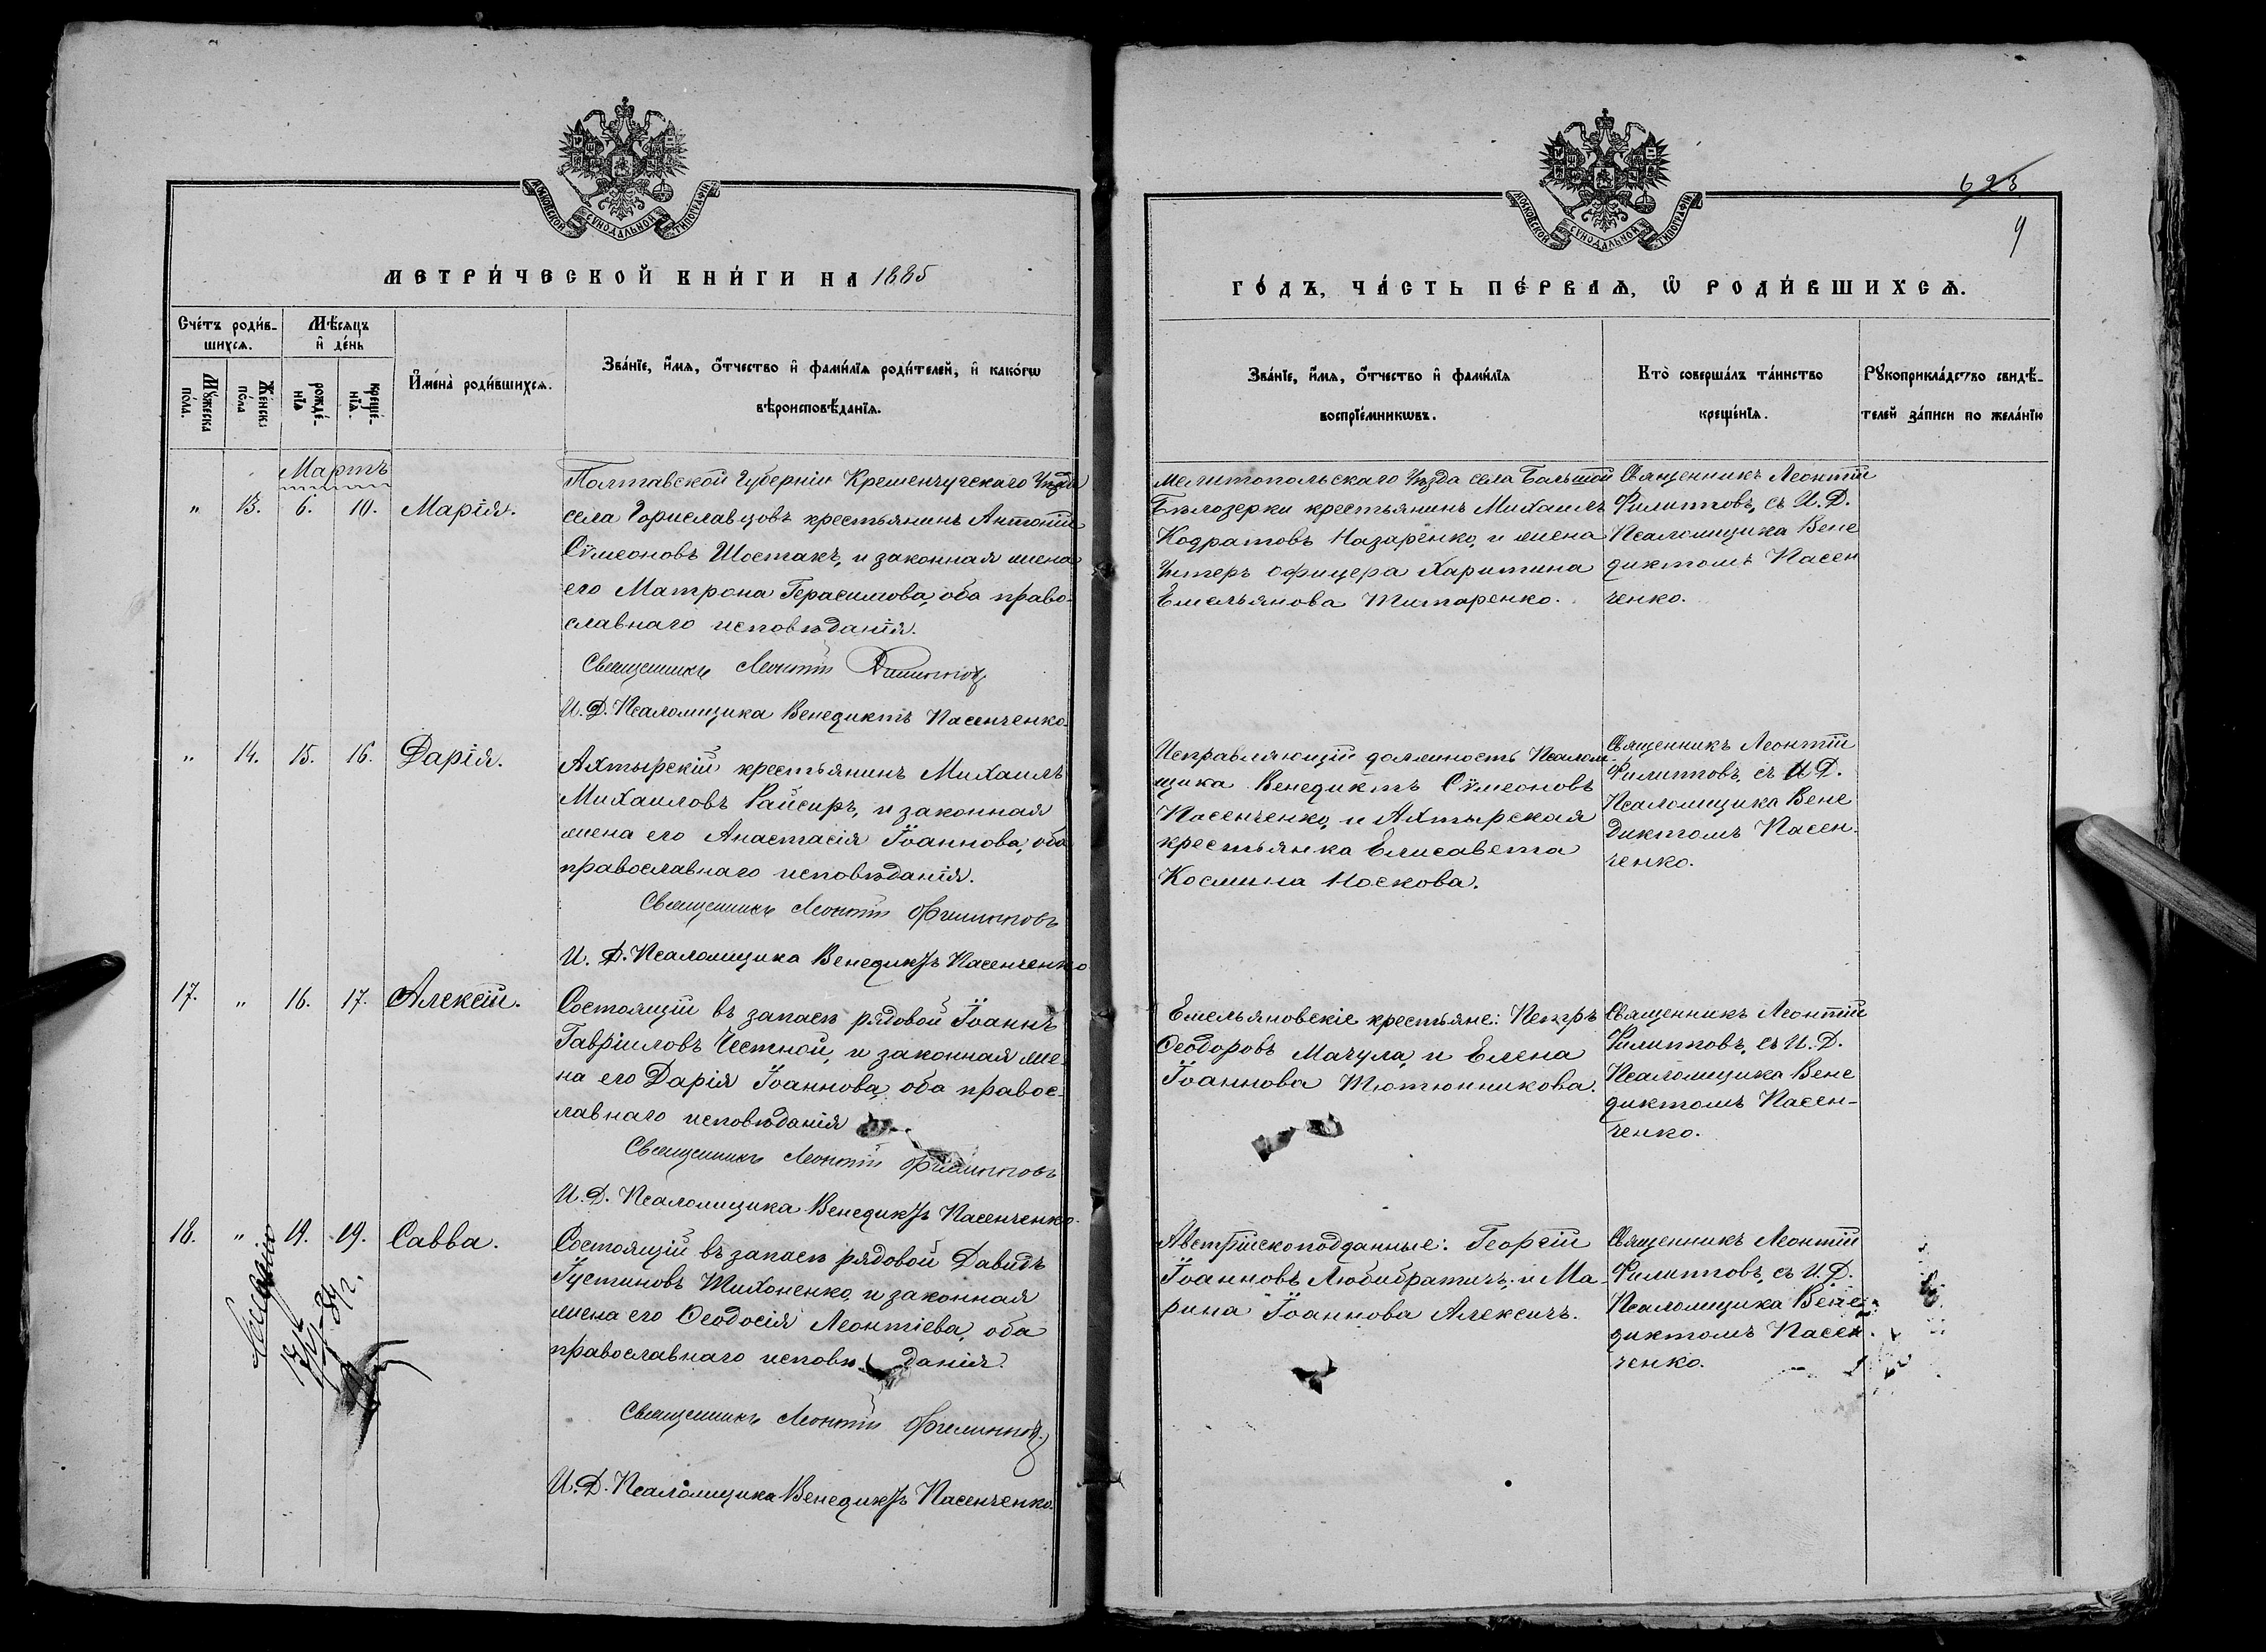 МОСКОВСКОЙ СѴНОДАЛЬНОЙ ТИПОГРАФІИ
МЕТРИ́ЧЕСКОЙ КНИ́ГИ НА 1885
Сче́тъ роди́в-
шихсѧ.
Мѣ́сѧцъ
и҆ де́нь
Мꙋ́жеска
пола.
Же́нска
по́ла
рожде́-
нїѧ
креще́-
нїѧ.
И҆мена̀ роди́вшихсѧ.
Зва́нїе, и҆́мѧ, ѻ҆́тчество и҆ фами́лїѧ роди́телей, и҆ како́гѡ
вѣроисповѣ́данїѧ.
Мартъ
" 13. 6. 10. Марія.
Полтавской Губерніи Кременчугскаго Уѣзда
села Гориславцовъ крестьянинъ Антоній
Сѵмеоновъ Шостакъ, и законная жена
его Матрона Герасимова, оба право-
славнаго исповѣданія.
Священникъ Леонтій Филипповъ
И. Д. Псаломщика Венедиктъ Пасенченко.
" 14. 15. 16. Дарія.
Ахтырскій крестьянинъ Михаилъ
Михаиловъ Райсиръ, и законная
жена его Анастасія Іоаннова, оба
православнаго исповѣданія.
Священникъ Леонтій Филипповъ
И. Д. Псаломщика Венедиктъ Пасенченко
17. " 16. 17. Алексій.
Состоящій въ запасѣ рядовой Іоаннъ
Гавріиловъ Честной, и законная же-
на его Дарія Іоаннова, оба правос-
лавнаго исповѣданія
Священникъ Леонтій Филипповъ
И. Д. Псаломщика Венедиктъ Пасенченко.
18. " 19. 19. Савва.
Состоящій въ запасѣ рядовой Давидъ
Іустиновъ Тихоненко, и законная
жена его Ѳеодосія Леонтіева, оба
православнаго исповѣданія.
Священникъ Леонтій Филипповъ
И. Д. Псаломщика Венедиктъ Пасенченко.
МОСКОВСКОЙ СѴНОДАЛЬНОЙ ТИПОГРАФІИ
623
9
ГО́ДЪ, ЧА́СТЬ ПЕ́РВАѦ, Ѡ҆ РОДИ́ВШИХСѦ.
Зва́нїе, и҆́мѧ, ѻ҆́тчество и҆ фами́лїѧ
воспрїе́мникѡвъ.
Кто̀ соверша́лъ та́инство
креще́нїѧ.
Рꙋкоприкла́дство свидѣ́-
телей за́писи по жела́нїю
Мелитопольскаго Уѣзда села Большой
Бѣлозерки крестьянинъ Михаилъ
Кодратовъ Назаренко, и жена
Унтеръ офицера Харитина
Емельянова Титаренко.
Священникъ Леонтій
Филипповъ, съ И. Д.
Псаломщика Вене
диктомъ Пасен
ченко.
Исправляющій должность Псалом-
щика Венедиктъ Сѵмеоновъ
Пасенченко, и Ахтырская
крестьянка Елисавета
Космина Носкова.
Священникъ Леонтій
Филипповъ, съ И. Д.
Псаломщика Вене
диктомъ Пасен-
ченко.
Емельяновскіе крестьяне: Петръ
Ѳеодоровъ Мачула, и Елена
Іоаннова Тютюнникова.
Священникъ Леонтій
Филипповъ, съ И. Д.
Псаломщика Вене
диктомъ Пасен-
ченко.
Австрійскоподданные: Георгій
Іоанновъ Любибратичъ, и Ма-
рина Іоаннова Алексичъ.
Священникъ Леонтій
Филипповъ, съ И. Д.
Псаломщика Вене-
диктомъ Пасен-
ченко.